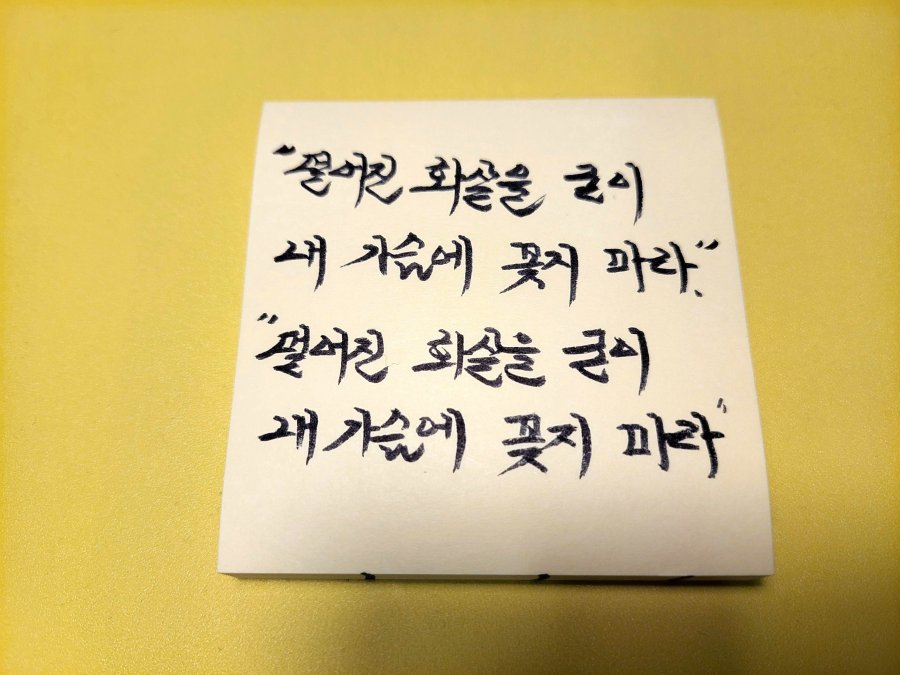 "떨어진 화살을 굳이
내 가슴에 꽂지 마라".
"떨어진 화살을 굳이
내 가슴에 꽂지 마라"